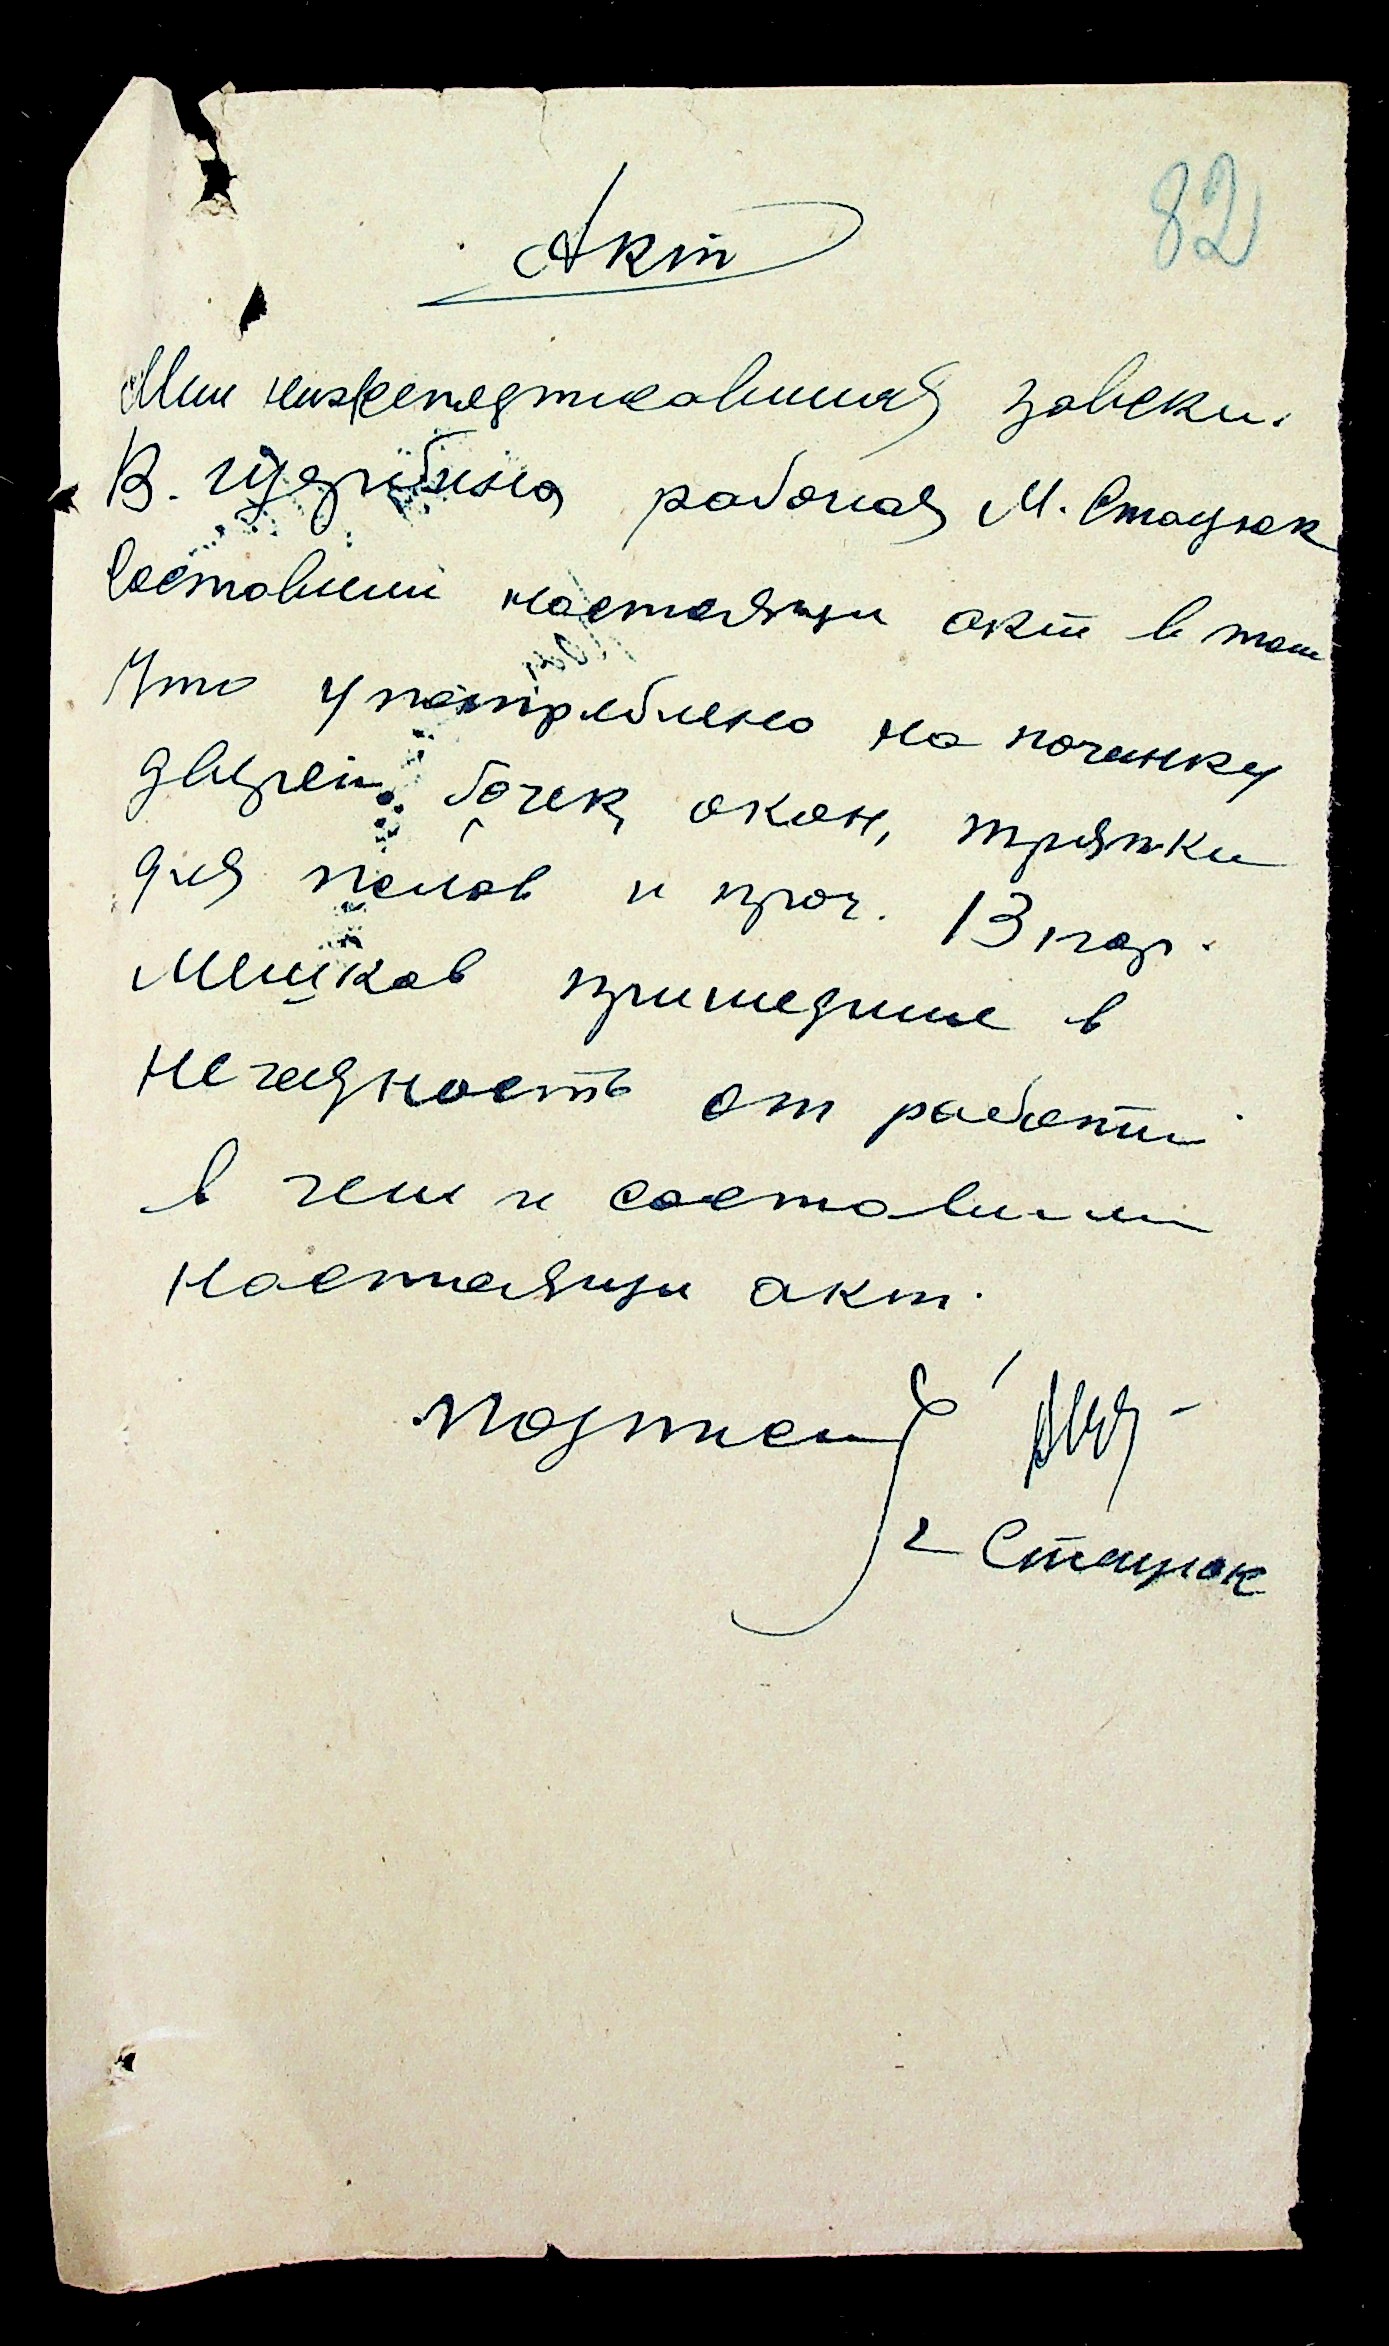 82
Акт
Мы нижеподписавшиеся завскл.
В. рабочая М. Стацюк
Составили настоящи акт в том
Что употреблено на починку
дверей бочек, окон, тряпки
для полов и проч. 13 пар.
Мешков пришедшие в
негодность от работы
в чем и составили
настоящи акт.
Подписи 1
2 Стацюк